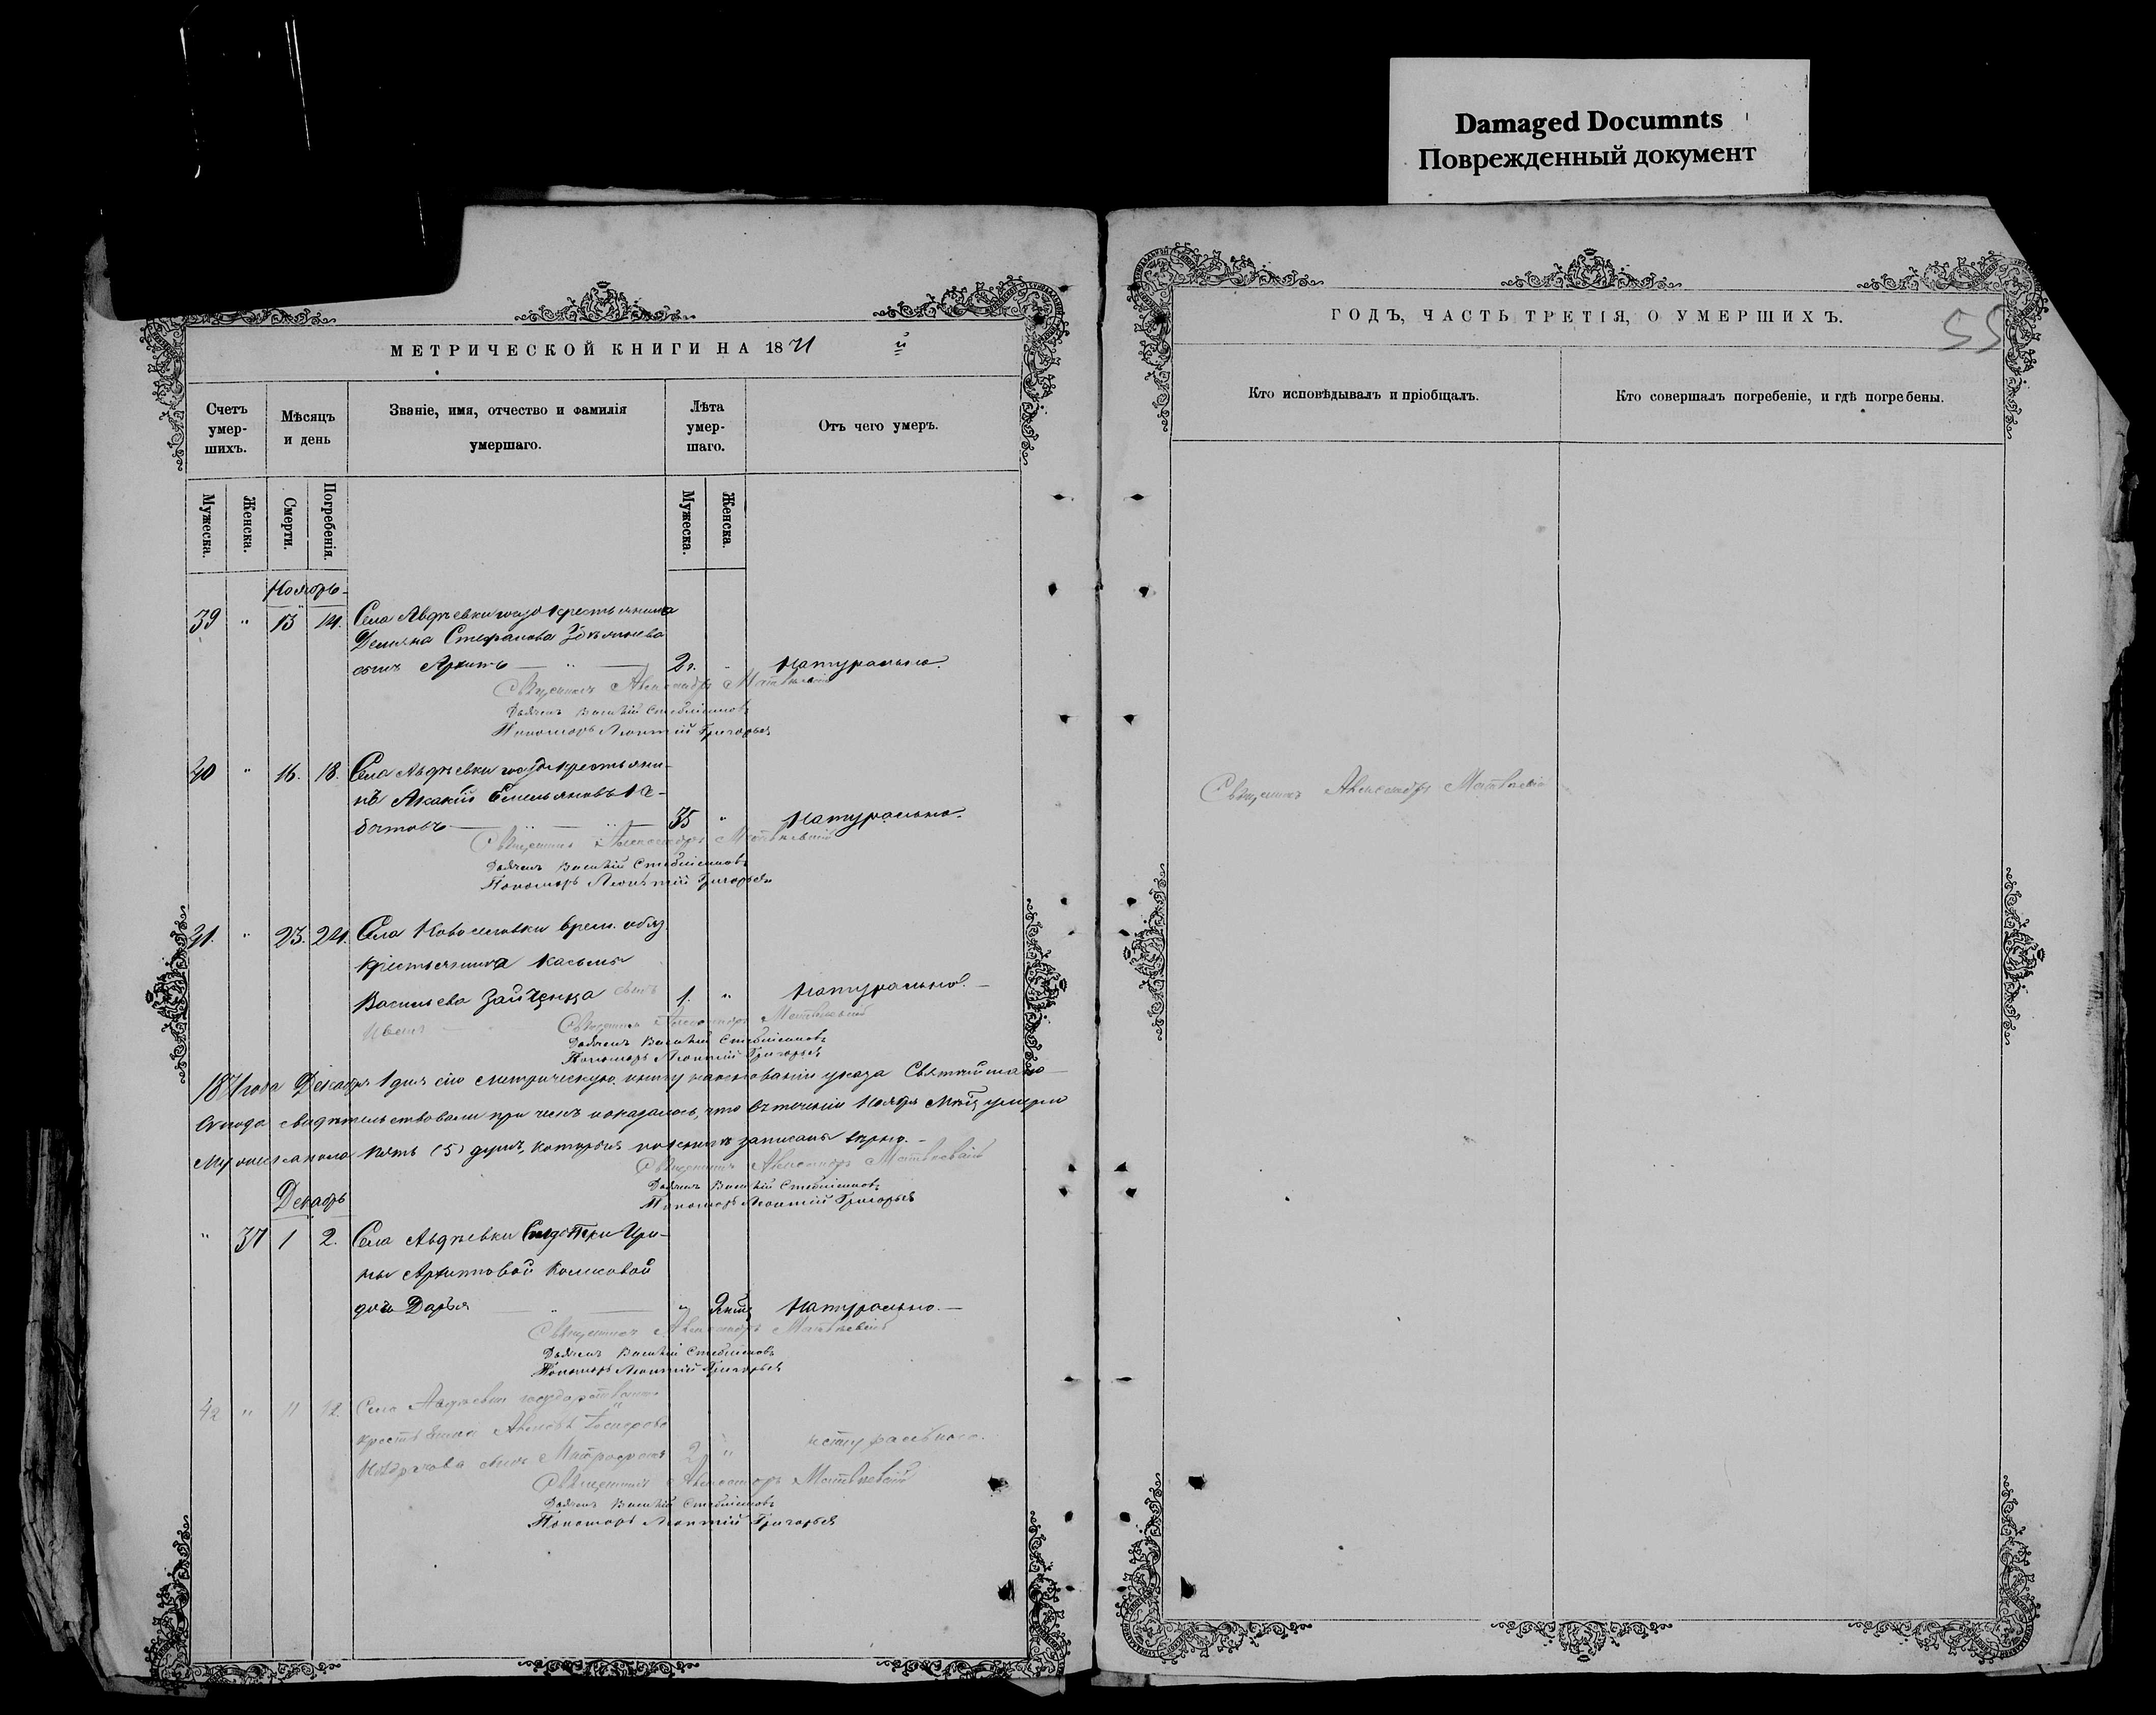 Damaged Documnts
Поврежденный документ
МЕТРИЧЕСКОЙ КНИГИ НА 1871 й
ГОДЪ, ЧАСТЬ ТРЕТІЯ, О УМЕРШИХЪ.
55
Счетъ умер-шихъ.
Мѣсяцъ и день
Званіе, имя, отчество и фамилія умершаго.
Лѣта умер-шаго.
Отъ чего умеръ.
Кто исповѣдывалъ и пріобщалъ.
Кто совершалъ погребеніе, и гдѣ погребены.
Мужеска.
Женска.
Смерти.
Погребенія.
Мужеска.
Женска.
Ноябрь
39 " 13 14. Села Авдѣевки госуд крестьянина
Демьяна Стефанова
сынъ Архипъ — " — 2 г. " Натурально.
Священникъ Александръ Матвѣевскій
Дьячекъ Василій
Пономарь Леонтій Григорьевъ
40 " 16. 18. Села Авдѣевки госуд крестьяни-
нъ Акакій Емельяновъ
35 " Натурально.
Священникъ Александръ Матвѣевскій
Дьячекъ Василій
Пономарь Леонтій Григорьевъ
41. " 23. 24. Села Новоселовки врем. обяз.
крестьянина Касьмы
Васильева Зайченка сынъ 1. " Натурально. —
Иванъ
Священникъ Александръ Матвѣевскій
Дьячекъ Василій
Пономарь Леонтій Григорьевъ
1871 года Декабря 1 дня сію метрическую книгу на основаніи указа Святѣйшаго
Синода свидѣтельствовали при чемъ оказалось, что въ теченіи Ноября мѣц умерло
мужеска пола пять (5) душъ, которыя записаны вѣрно. —
Священникъ Александръ Матвѣевскій
Дьячекъ Василій
Пономарь Леонтій Григорьевъ
Декабрь
" 37 1 2. Села Авдѣевки Ири-
ны Архиповой
дочь Дарья — " — " Натурально. —
Священникъ Александръ Матвѣевскій
Дьячекъ Василій
Пономарь Леонтій Григорьевъ
42 " 11 12. Села Авдѣевки государственн.
крестьянина
сынъ Митрофанъ 2 " натурально.
Священникъ Александръ Матвѣевскій
Дьячекъ Василій
Пономарь Леонтій Григорьевъ
Священникъ Александръ Матвѣевскій